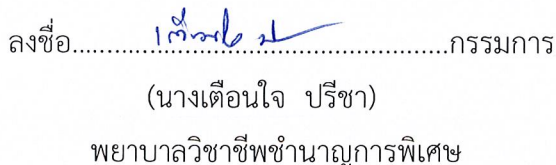 ลงชื่อ................................................กรรมการ
(นางเตือนใจ ปรีชา)
พยาบาลวิชาชีพชำนาญการพิเศษ